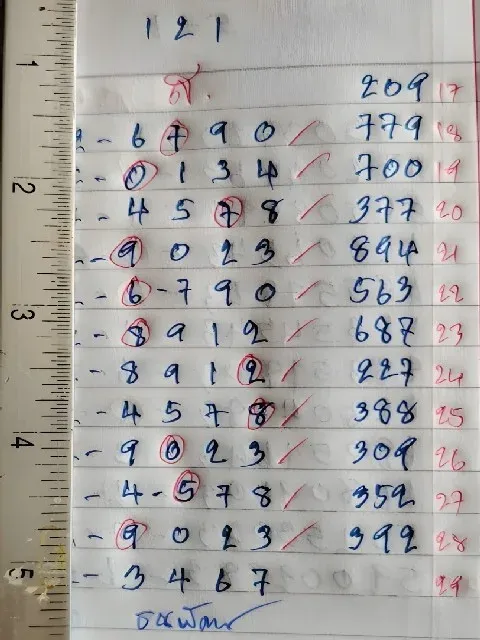 1 2 1
1
ส. 209 17
- 6 7 9 0 / 779 18
- 0 1 3 4 / 700 19
2
- 4 5 7 8 / 377 20
- 9 0 2 3 / 894 21
- 6 - 7 9 0 / 563 22
3
- 8 9 1 2 / 687 23
- 8 9 1 2 / 227 24
- 4 5 7 8 / 388 25
4
- 9 0 2 3 / 309 26
- 4 - 5 7 8 / 352 27
- 9 0 2 3 / 392 28
5
- 3 4 6 7 29